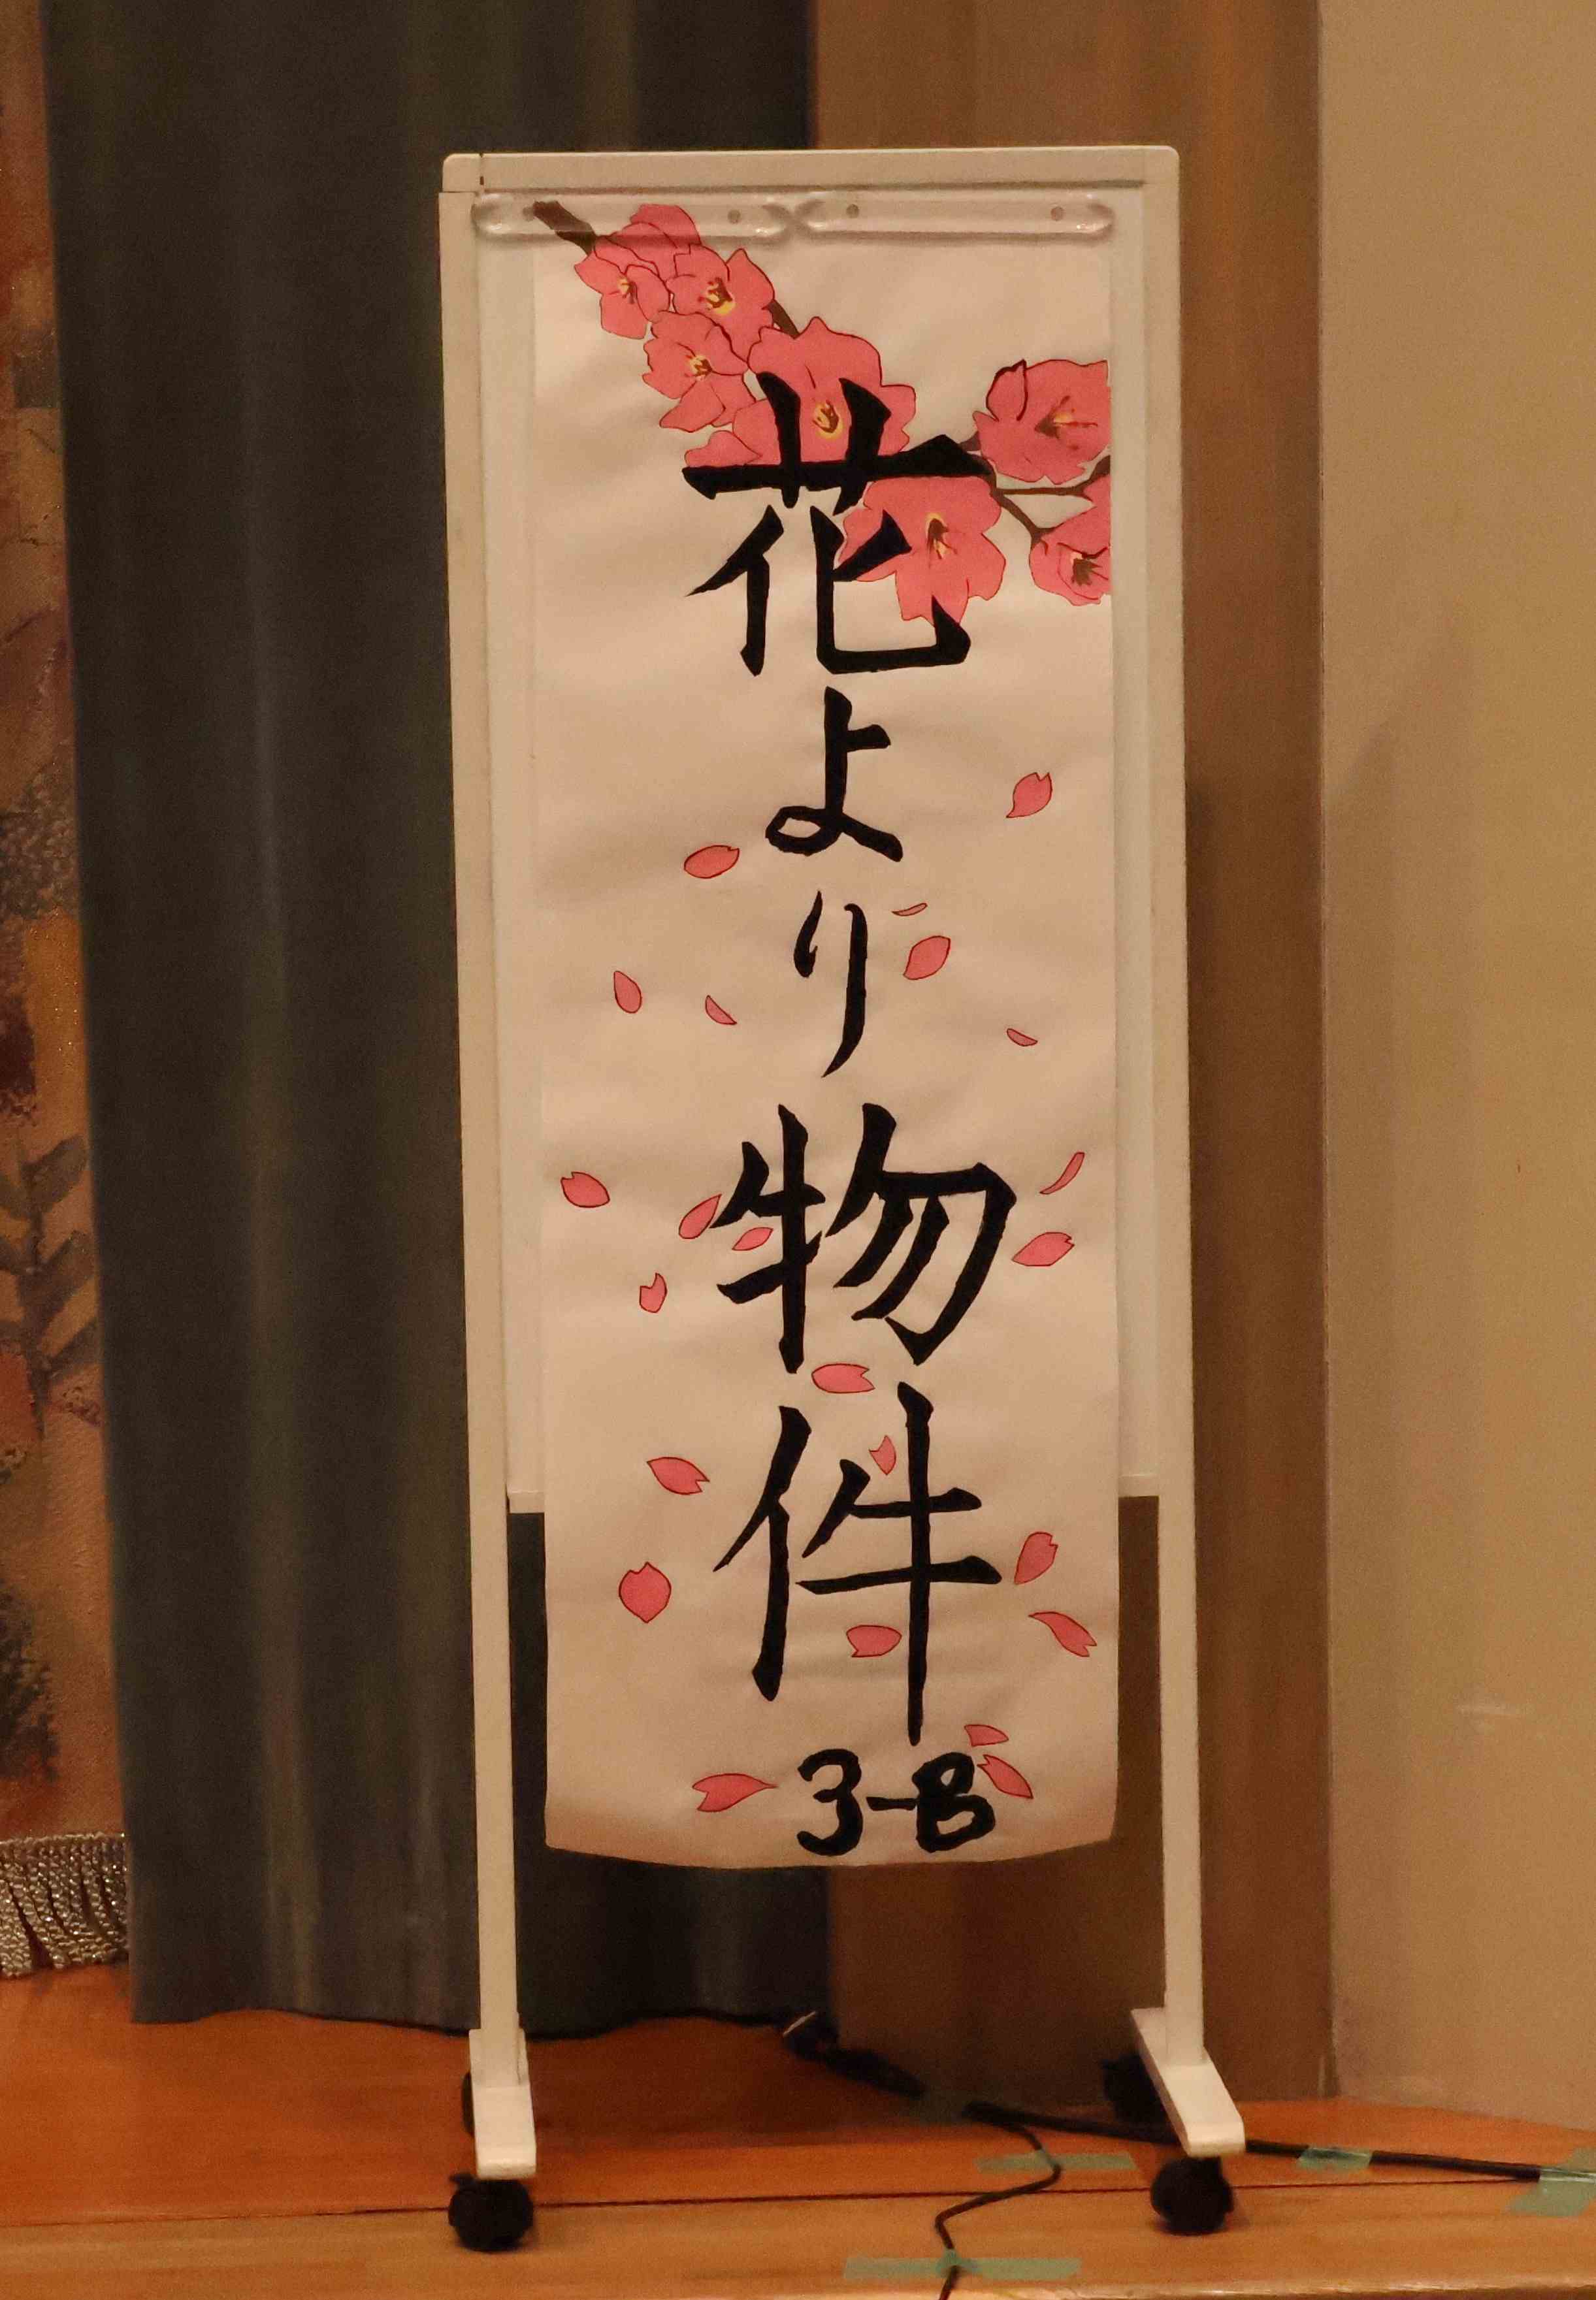 花より物件
3-B